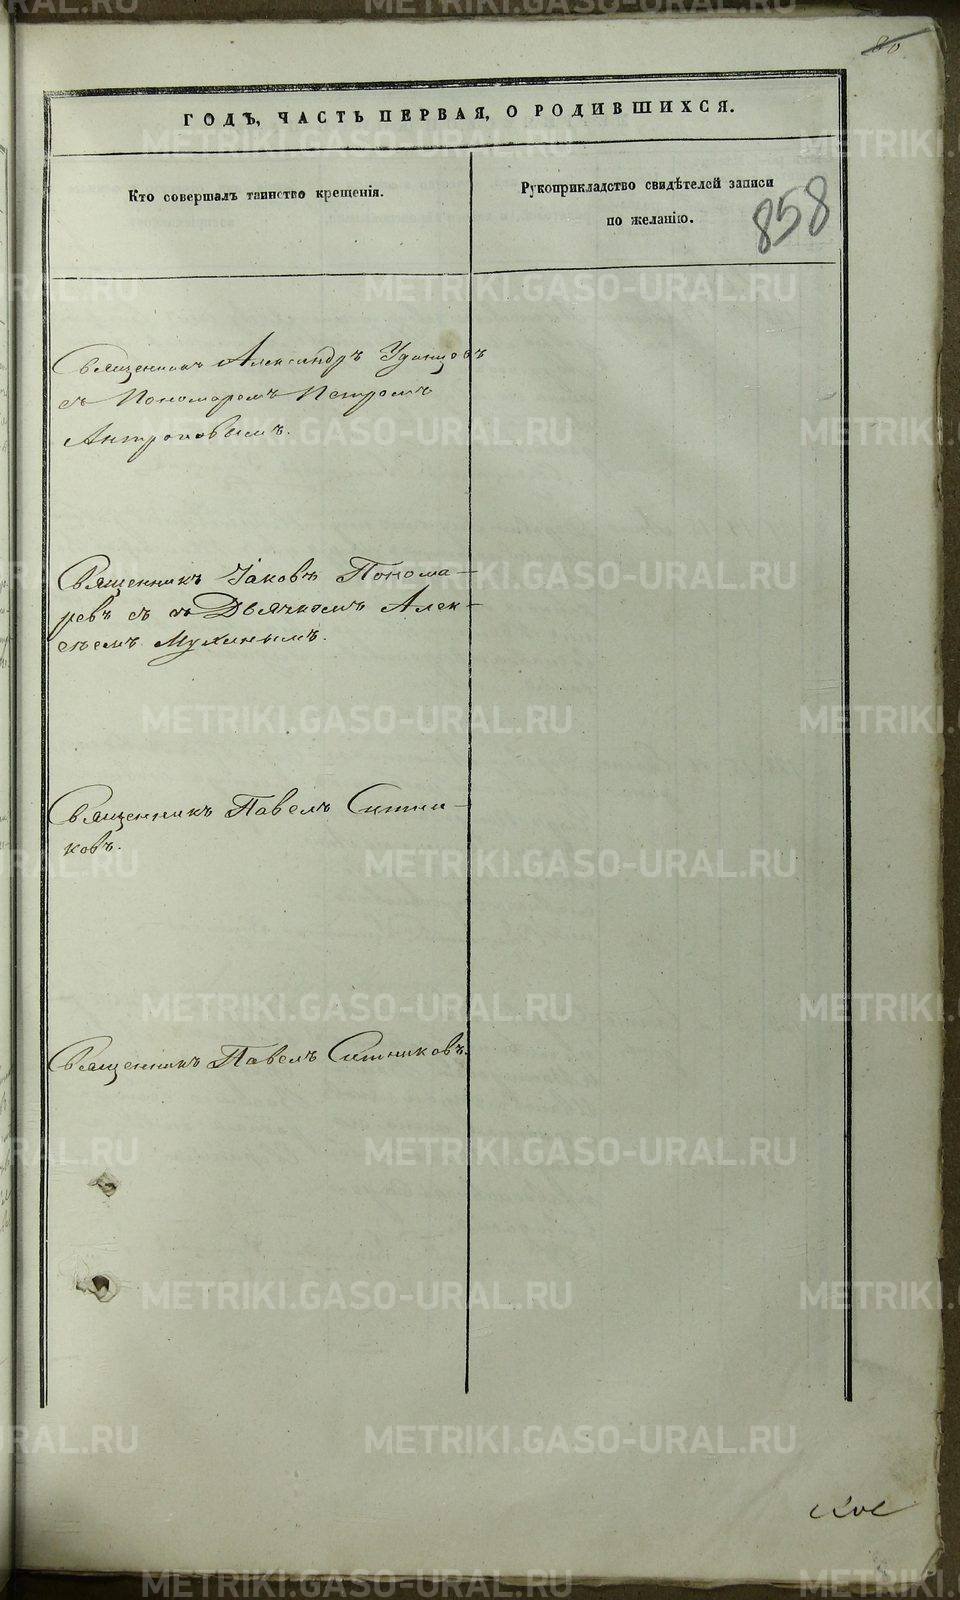 80
ГОДЪ, ЧАСТЬ ПЕРВАЯ, О РОДИВШИХСЯ.
Кто совершалъ таинство крещенія.
Рукоприкладство свидѣтелей записи
по желанію.
858
Священникъ Александръ Удинцовъ
съ Пономаремъ Петромъ
Антроповымъ.
Священникъ Іаковъ Понома-
ревъ съ Дьячкомъ Алек-
сѣемъ Мухинымъ.
Священникъ Павелъ Ситни-
ковъ.
Священникъ Павелъ Ситниковъ.
METRIKI.GASO-URAL.RU